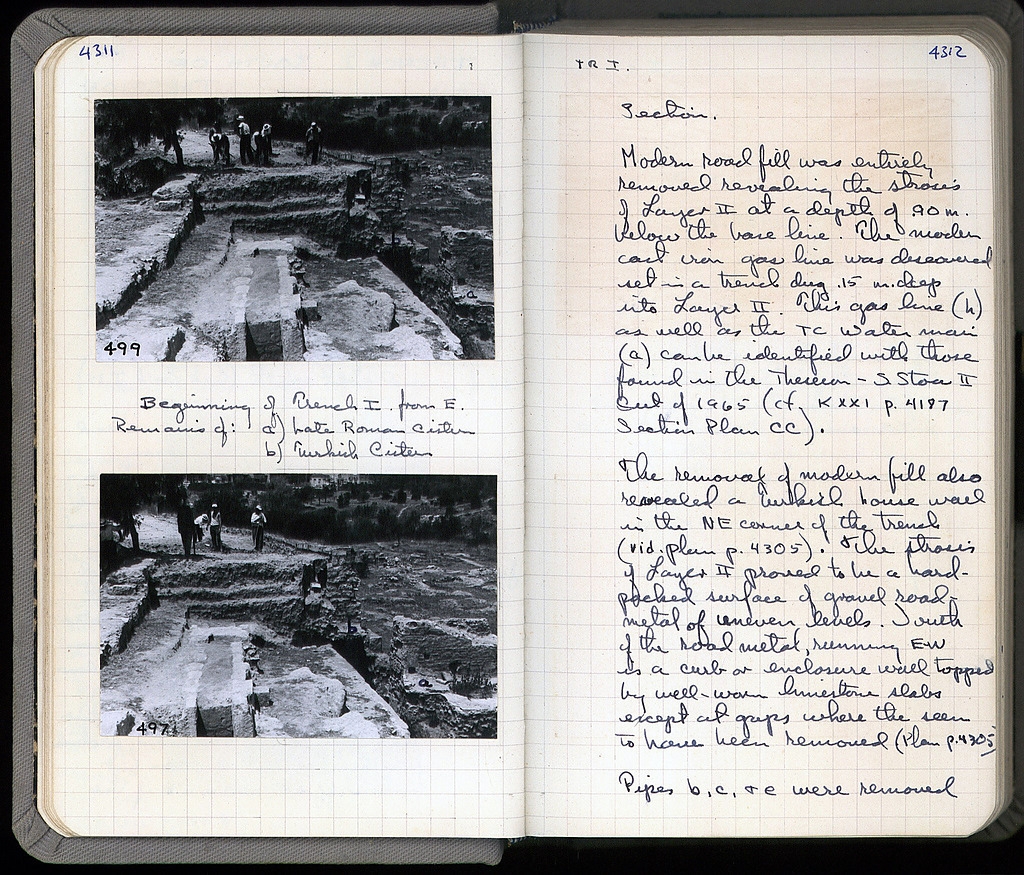 4311
499
Beginning of Trench I from E.
Remains of: a) Late Roman Cistern
b) Turkish Cistern
b
a
497
4312
TR I.
Section.
Modern road fill was entirely
removed revealing the strosis
of Layer II at a depth of .90 m.
below the base line. The modern
cast iron gas line was descovered
set in a trench dug .15 m. deep
into Layer II. This gas line (h)
as well as the TC water main
(a) can be identified with those
found in the Theseion - S. Stoa II
Cut of 1965 (cf. K XXI p. 4187
Section Plan CC).
The removal of modern fill also
revealed a Turkish house wall
in the NE corner of the trench
(vid. plan p. 4305). The strosis
of Layer II proved to be a hard-
packed surface of gravel road-
metal of uneven levels. South
of the road metal, running E-W
is a curb or enclosure wall topped
by well-worn limestone slabs
except at gaps where the seem
to have been removed (Plan p. 4305)
Pipes b, c, + e were removed